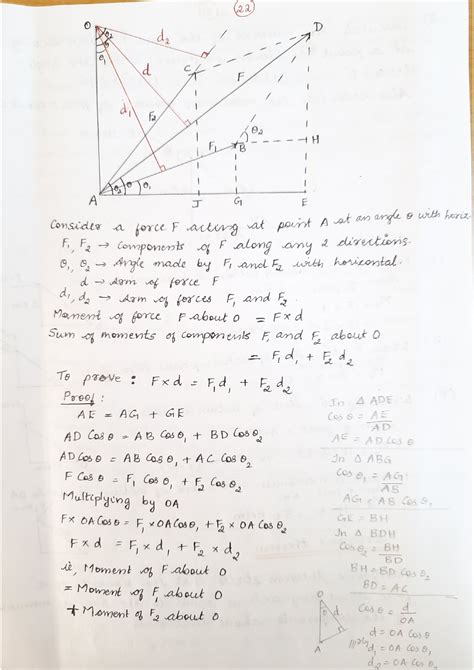 22
O
D
d₂
θ₂
θ
θ₁
d
d₁
C
F
F₂
F₁
B
θ₂
H
A
θ₂
θ
θ₁
J
G
E
Consider a force F acting at point A at an angle θ with horiz
F₁, F₂ → Components of F along any 2 directions.
θ₁, θ₂ → Angle made by F₁ and F₂ with horizontal.
d → Arm of force F
d₁, d₂ → Arm of forces F₁ and F₂.
Moment of force F about O = F × d
Sum of moments of components F₁ and F₂ about O
= F₁d₁ + F₂d₂
To prove : F × d = F₁d₁ + F₂d₂
Proof :
AE = AG + GE
AD Cosθ = AB Cosθ₁ + BD Cosθ₂
AD Cosθ = AB Cosθ₁ + AC Cosθ₂
F Cosθ = F₁ Cosθ₁ + F₂ Cosθ₂
Multiplying by OA
F × OA Cosθ = F₁ × OA Cosθ₁ + F₂ × OA Cosθ₂
F × d = F₁ × d₁ + F₂ × d₂
ie, Moment of F about O
= Moment of F₁ about O
+ Moment of F₂ about O
In △ ADE
Cosθ = AE/AD
AE = AD Cosθ
In △ ABG
Cosθ₁ = AG/AB
AG = AB Cosθ₁
GE = BH
In △ BDH
Cosθ₂ = BH/BD
BH = BD Cosθ₂
BD = AC
O
θ
d
A
Cosθ = d/OA
d = OA Cosθ
|||ly d₁ = OA Cosθ₁
d₂ = OA Cosθ₂